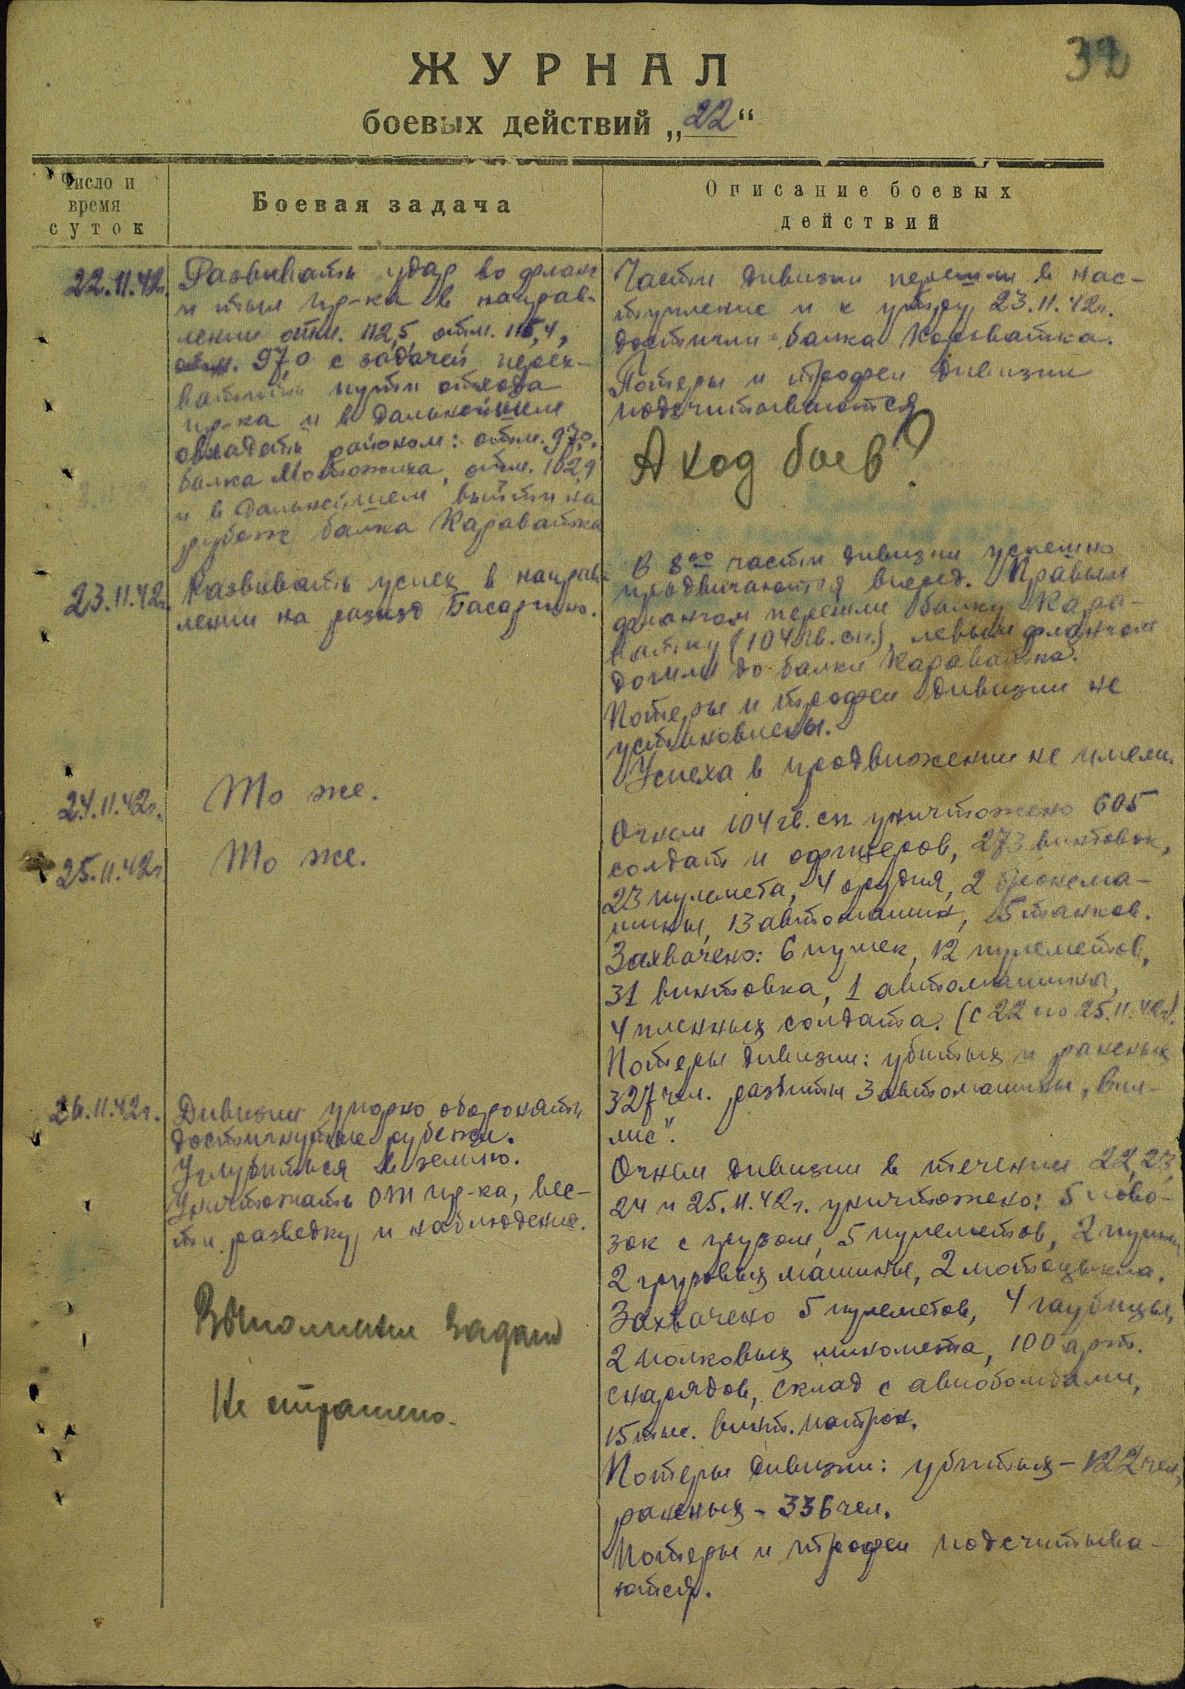 32
ЖУРНАЛ
боевых действий „22“
Число и
время
суток
Боевая задача
Описание боевых
действий
22.11.42г.
Развивать удар во фланг
и тыл пр-ка в направ-
лении отм. 112,5, отм. 115,4,
отм. 97,0 с задачей перех-
ватить пути отхода
пр-ка и в дальнейшем
овладеть районом: отм. 97,0.
балка отм. 102,9
и в дальнейшем выйти на
рубеж балка Караватка
Части дивизии перешли в нас-
тупление и к утру 23.11.42г.
достигли балка Короватка.
Потери и трофеи дивизии
подсчитываются
А ход боев?
23.11.42г.
Развивать успех в направ-
лении на разъезд Басаргино.
В 8⁰⁰ части дивизии успешно
продвигаются вперед. Правым
флангом перешли балку Кара-
ватку (104 гв. сп.), левым флангом
дошли до балки Караватка.
Потери и трофеи дивизии не
установлены.
24.11.42г.
То же.
Успеха в продвижении не имели.
25.11.42г
То же.
Огнем 104 гв. сп уничтожено 605
солдат и офицеров, 273 винтовок,
23 пулемета, 4 орудия, 2 бронема-
шины, 13 автомашин, 15 танков.
Захвачено: 6 пушек, 12 пулеметов,
31 винтовка, 1 автомашина,
4 пленных солдата. (с 22 по 25.11.42г).
Потери дивизии: убитых и раненых
327 чел. разбиты 3 автомашины, „вил-
лис“.
26.11.42г.
Дивизии упорно оборонять
достигнутые рубежи.
Углубиться в землю.
Уничтожать ОТ пр-ка, вес-
ти разведку и наблюдение.
Выполнение задач
Не отражено.
Огнем дивизии в течении 22,23,
24 и 25.11.42г. уничтожено: 5 пово-
зок с грузом, 5 пулеметов, 2 пушки
2 грузовых машины, 2 мотоцикла.
Захвачено 5 пулеметов, 4 гаубицы,
2 полковых миномета, 100 арт.
снарядов, склад с авиобомбами,
15 тыс. винт. патрон.
Потери дивизии: убитых – 122 чел,
раненых – 336 чел.
Потери и трофеи подсчитыва-
ются.